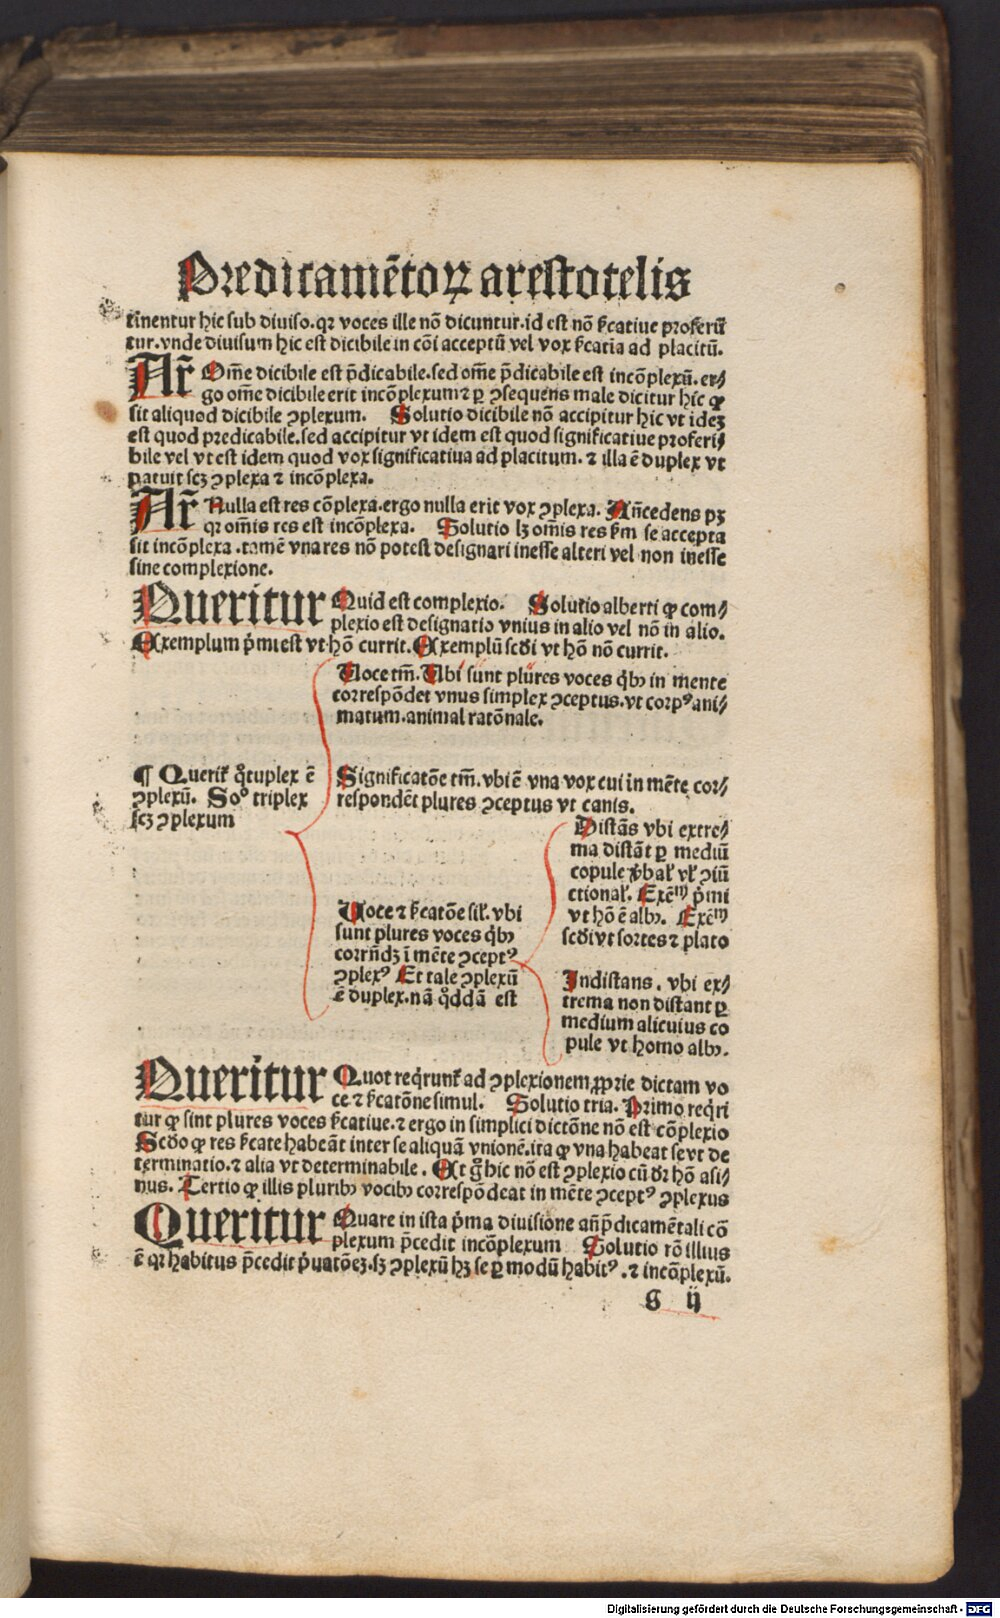 Predicamẽtoꝝ arestotelis
tinentur hic sub diuiso.qꝛ voces ille nõ dicuntur.id est nõ ẜcatiue proferũ
tur.vnde diuisum hic est dicibile in cõi acceptũ vel vox ẜcatĩa ad placitũ.
Ar̃ Om̃e dicibile est p̃dicabile.sed om̃e p̃dicabile est incõplexũ.er⸗
go om̃e dicibile erit incõplexum ⁊ ꝑ ꝯsequens male dicitur hic ꝙ
sit aliquod dicibile ꝯplexum. Solutio dicibile nõ accipitur hic vt ideꝫ
est quod predicabile.sed accipitur vt idem est quod significatiue proferi⸗
bile vel vt est idem quod vox significatiua ad placitum.⁊ illa ẽ duplex vt
patuit scꝫ ꝯplexa ⁊ incõplexa.
Ar̃ Nulla est res cõplexa.ergo nulla erit vox ꝯplexa. Añcedens pꝫ
qꝛ om̃is res est incõplexa. Solutio lꝫ om̃is res ẜm se accepta
sit incõplexa.tamẽ vna res nõ potest designari inesse alteri vel non inesse
sine complexione.
Queritur Quid est complexio. Solutio alberti ꝙ com⸗
plexio est designatio vnius in alio vel nõ in alio.
Exemplum p̃mi est vt hõ currit. Exemplũ scd̃i vt hõ nõ currit.
Uoce tm̃. Ubi sunt plures voces q̃bꝫ in mente
correspõdet vnus simplex ꝯceptus.vt corpꝰ ani⸗
matum.animal ratõnale.
¶ Querit̃ q̊tuplex ẽ
ꝯplexũ. Soº triplex
scꝫ ꝯplexum
Significatõe tm̃.vbi ẽ vna vox cui in mẽte cor⸗
respondẽt plures ꝯceptus vt canis.
Distãs vbi extre⸗
ma distãt ꝑ mediũ
copule v̾bal̃ vl̃ ꝯiũ
ctional̃. Exẽᵐ p̃mi
vt hõ ẽ albꝫ. Exẽᵐ
scd̃i vt sortes ⁊ plato
Uoce ⁊ ẜcatõe sil̃.vbi
sunt plures voces q̃bꝫ
corrñdꝫ ĩ mẽte ꝯceptꝰ
ꝯplexꝰ Et tale ꝯplexũ
ẽ duplex.nã q̊ddã est
Indistans.vbi ex⸗
trema non distant ꝑ
medium alicuius co
pule vt homo albꝫ.
Queritur Quot req̃runt̃ ad ꝯplexionem ꝓprie dictam vo
ce ⁊ ẜcatõne simul. Solutio tria. Primo req̃ri
tur ꝙ sint plures voces ẜcatiue.⁊ ergo in simplici dictõne nõ est cõplexio
Scd̃o ꝙ res ẜcate habeãt inter se aliquã vnionẽ.ita ꝙ vna habeat se vt de
terminatio.⁊ alia vt determinabile. Et g̊ hic nõ est ꝯplexio cũ dr̃ hõ asi⸗
nus. Tertio ꝙ illis pluribꝫ vocibꝫ correspõdeat in mẽte ꝯceptꝰ ꝯplexus
Queritur Quare in ista p̃ma diuisione añp̃dicamẽtali cõ
plexum p̃cedit incõplexum Solutio rõ illius
ẽ qꝛ habitus p̃cedit p̃uatõeꝫ.sꝫ ꝯplexũ hꝫ se ꝑ modũ habitꝰ.⁊ incõplexũ.
G ij
Digitalisierung gefördert durch die Deutsche Forschungsgemeinschaft - DFG